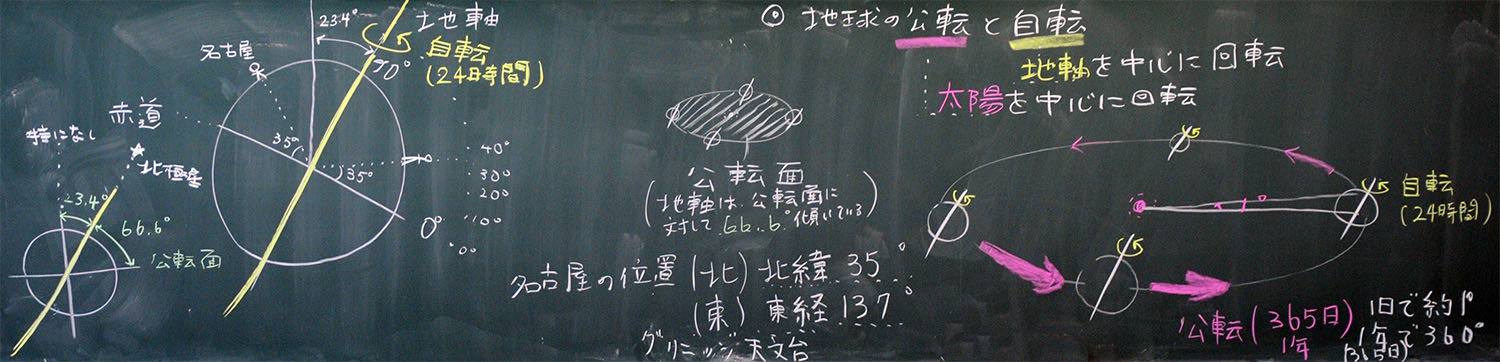 特になし
北極星
23.4°
66.6°
公転面
23.4°
地軸
名古屋
90°
自転
(24時間)
赤道
35°
35°
40°
30°
20°
10°
0°
0°
公転面
(地軸は公転面に
対して66.6°傾いている)
名古屋の位置(北)北緯35°
(東)東経137°
グリニッジ天文台
◎地球の公転と自転
地軸を中心に回転
太陽を中心に回転
1°
自転
(24時間)
公転(365日)
1年
1日で約1°
1年で360°
(365日)